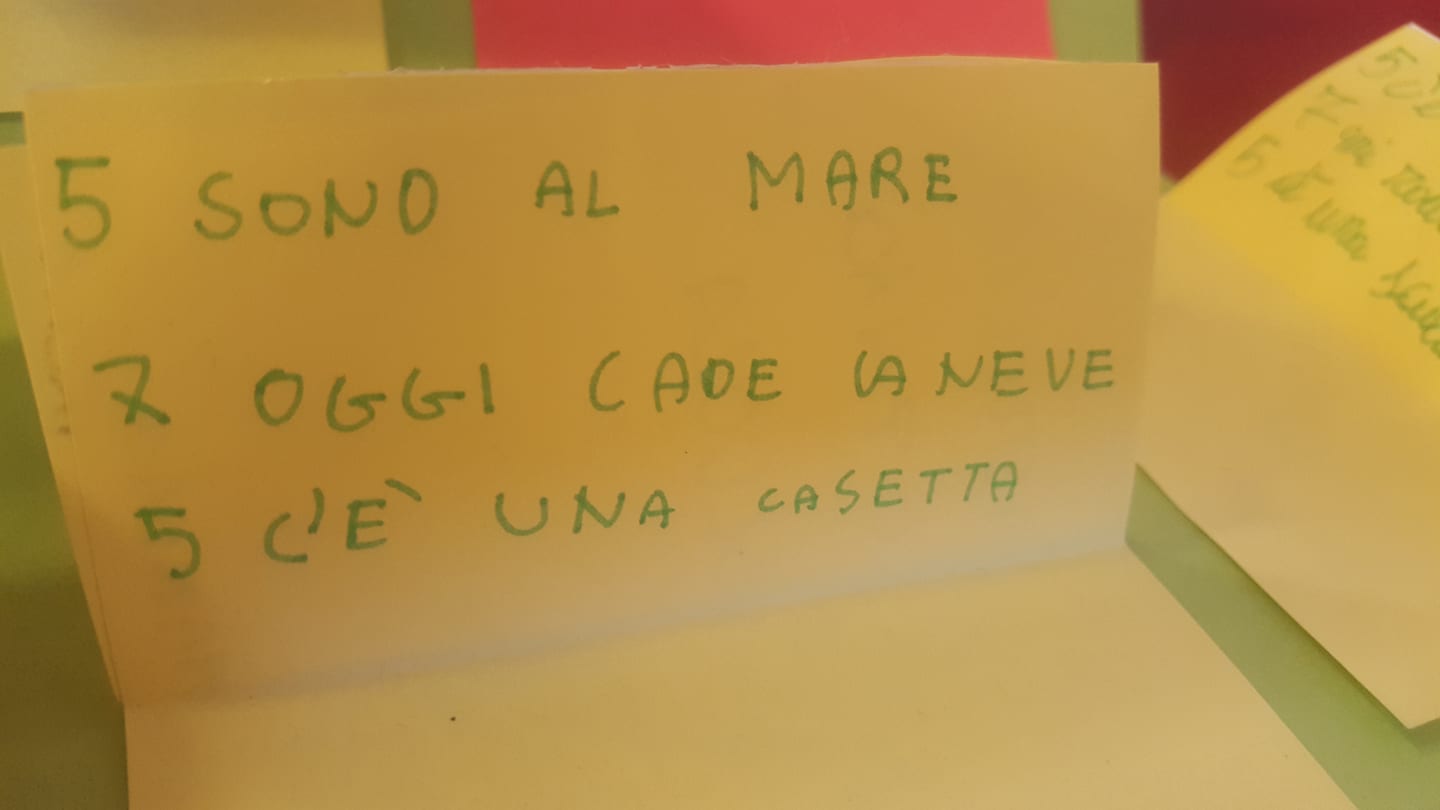 5 SONO AL MARE
7 OGGI CADE LA NEVE
5 C'È UNA CASETTA
5
7 mi
5 una